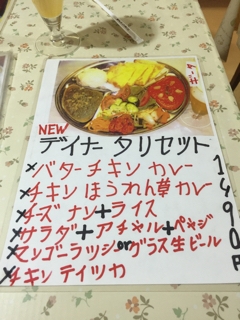 NEW
デイナー タリセット
×バターチキン カレー
×チキン ほうれん草カレー
×チーズ ナン+ライス
×サラダ+アチャル+ペャジ
×マンゴーラッシorグラス生ビール
×チキン テイツカ
1490円